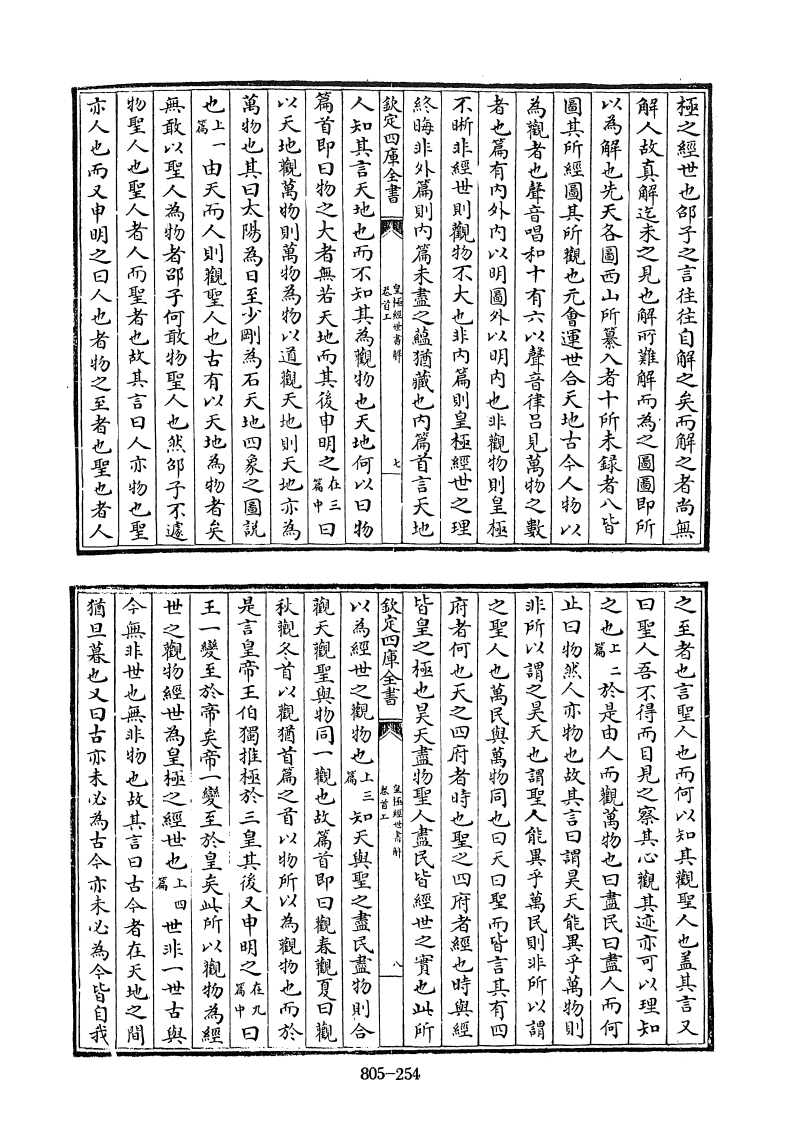 極之經世也邵子之言往往自解之矣而解之者尚無
解人故真解迄未之見也解所難解而為之圖圖即所
以為解也先天各圖西山所纂入者十所未録者八皆
圖其所經圖其所觀也元會運世合天地古今人物以
為觀者也聲音唱和十有六以聲音律吕見萬物之數
者也篇有内外内以明圖外以明内也非觀物則皇極
不晰非經世則觀物不大也非内篇則皇極經世之理
終晦非外篇則内篇未盡之藴猶藏也内篇首言天地
欽定四庫全書
皇極經世書解
卷首上
七
人知其言天地也而不知其為觀物也天地何以曰物
篇首即曰物之大者無若天地而其後申明之在三篇中曰
以天地觀萬物則萬物為物以道觀天地則天地亦為
萬物也其曰太陽為日至少剛為石天地四象之圖說
也上一篇由天而人則觀聖人也古有以天地為物者矣
無敢以聖人為物者邵子何敢物聖人也然邵子不遽
物聖人也聖人者人而聖者也故其言曰人亦物也聖
亦人也而又申明之曰人也者物之至者也聖也者人
之至者也言聖人也而何以知其觀聖人也盖其言又
曰聖人吾不得而目見之察其心觀其迹亦可以理知
之也上二篇於是由人而觀萬物也曰盡民曰盡人而何
止曰物然人亦物也故其言曰謂昊天能異乎萬物則
非所以謂之昊天也謂聖人能異乎萬民則非所以謂
之聖人也萬民與萬物同也曰天曰聖而皆言其有四
府者何也天之四府者時也聖之四府者經也時與經
皆皇之極也昊天盡物聖人盡民皆經世之實也此所
欽定四庫全書
皇極經世書解
卷首上
八
以為經世之觀物也上三篇知天與聖之盡民盡物則合
觀天觀聖與物同一觀也故篇首即曰觀春觀夏曰觀
秋觀冬首以觀猶首篇之首以物所以為觀物也而於
是言皇帝王伯獨推極於三皇其後又申明之在九篇中曰
王一變至於帝矣帝一變至於皇矣此所以觀物為經
世之觀物經世為皇極之經世也上四篇世非一世古與
今無非世也無非物也故其言曰古今者在天地之間
猶旦暮也又曰古亦未必為古今亦未必為今皆自我
805-254